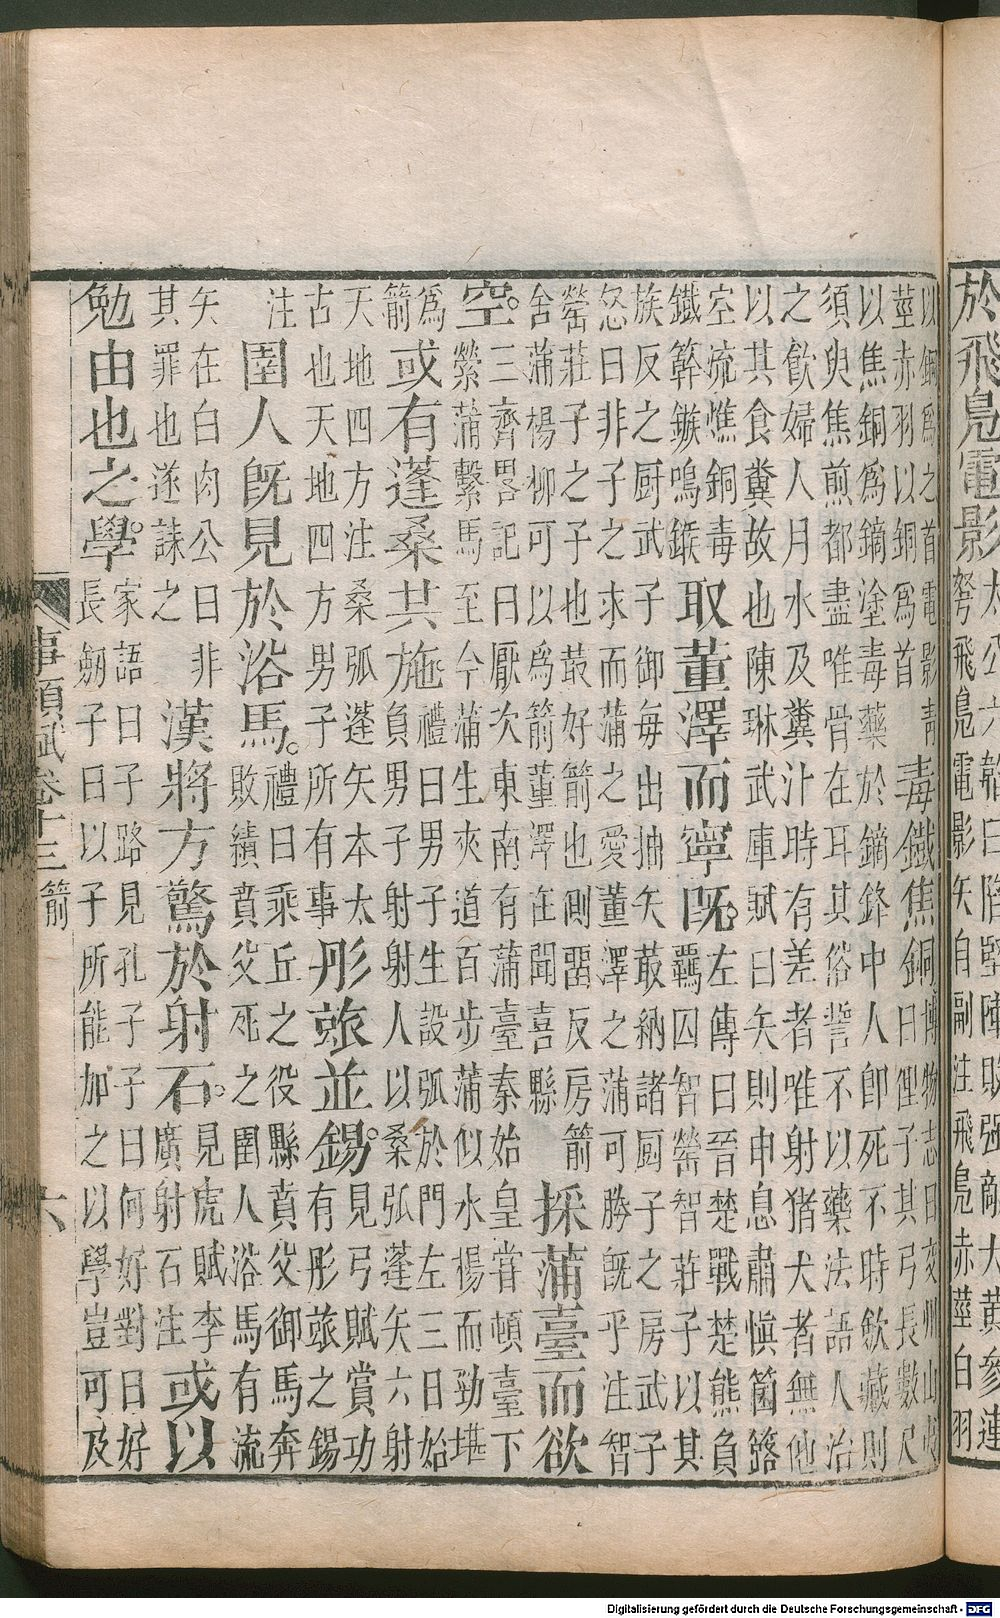 於飛鳧電影
太公六韜曰陷堅陣敗强敵大黄參連
弩飛鳧電影矢自副注飛鳧赤莖白羽
以銅爲之首電影靑
莖赤羽以銅爲首
毒鐵焦銅
博物志曰交州山夷
曰俚子其弓長數尺
以焦銅爲鏑塗毒藥於鏑鋒中人卽死不時飲藏則
須臾焦煎都盡唯骨在耳其俗誓不以藥法語人治
之飮婦人月水及糞汁時有差者唯射猪犬者無他
以其食糞故也陳琳武庫賦曰矢則申息肅愼箘簬
空流憔銅毒
鐵簳鏃鳴鏃
取董澤而寧旣。
左傳曰晉楚戰楚熊負
羈囚智罃智莊子以其
族反之厨武子御每出抽矢菆納諸厨子之房武子
怒曰非子之求而蒲之愛董澤之蒲可勝旣乎注智
罃莊子之子也菆好箭也側畱反房箭
舍蒲楊柳可以爲箭董澤在聞喜縣
採蒲臺而欲
空。
三齊畧記曰厭次東南有蒲臺秦始皇甞頓臺下
縈蒲繫馬至今蒲生夾道百步蒲似水楊而勁堪
爲
箭
或有蓬桑共施
禮曰男子生設弧於門左三日始
負男子射射人以桑弧蓬矢六射
天地四方注桑弧蓬矢本太
古也天地四方男子所有事
彤玈並錫。
見弓賦賞功
有彤玈之錫
注
圉人旣見於浴馬。
禮曰乘丘之役縣賁父御馬奔
敗績賁父死之圉人浴馬有流
矢在白肉公曰非
其罪也遂誅之
漢將方驚於射石。
見虎賦李
廣射石注
或以
勉由也之學。
家語曰子路見孔子子曰何好對曰好
長劒子曰以子所能加之以學豈可及
事類賦卷十三 箭 六
Digitalisierung gefördert durch die Deutsche Forschungsgemeinschaft - DFG